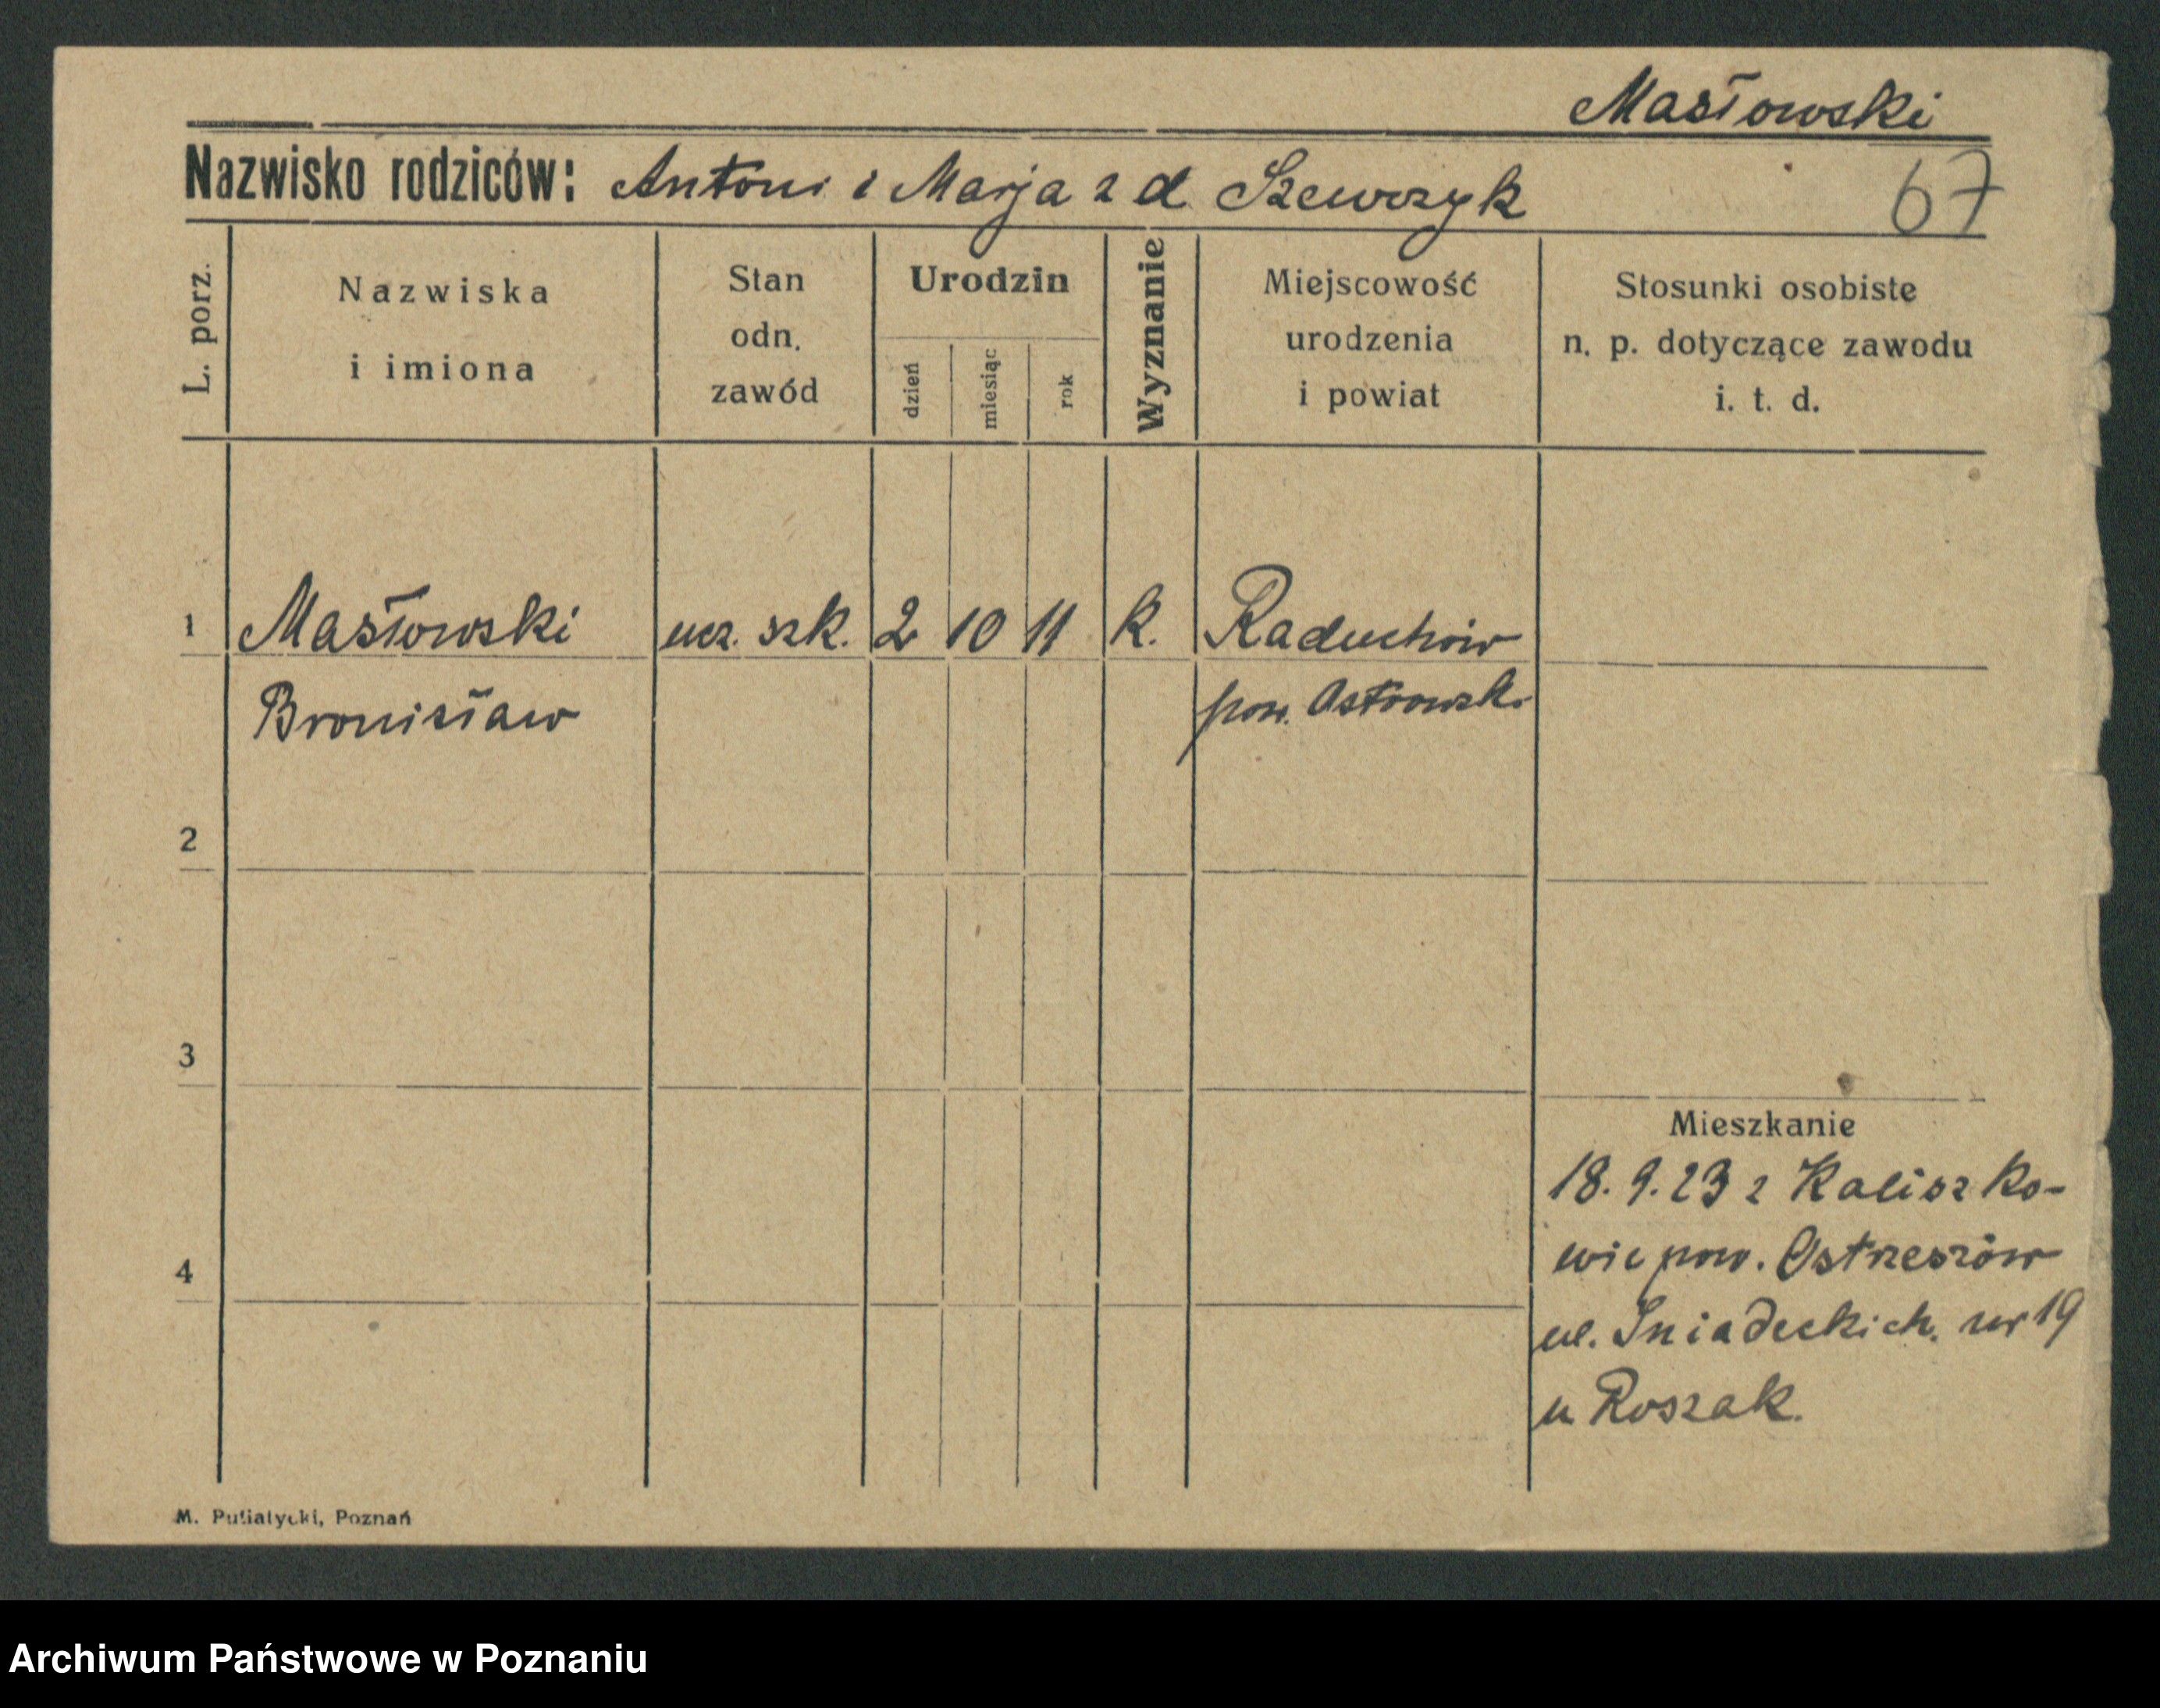 Masłowski
Nazwisko rodziców: Antoni i Marja z d. Szewczyk
67
L. porz.
Nazwiska
i imiona
Stan
odn.
zawód
Urodzin
dzień
miesiąc
rok
Wyznanie
Miejscowość
urodzenia
i powiat
Stosunki osobiste
n. p. dotyczące zawodu
i. t. d.
1
Masłowski
ucz. szk.
2
10
11
k.
Raduchów
Bronisław
pow. Ostrowsk.
2
3
4
Mieszkanie
18.9.23 z Kaliszko-
wic pow. Ostrzeszów
ul. Śniadeckich. nr 19
u Roszak.
M. Putiatycki, Poznań
Archiwum Państwowe w Poznaniu